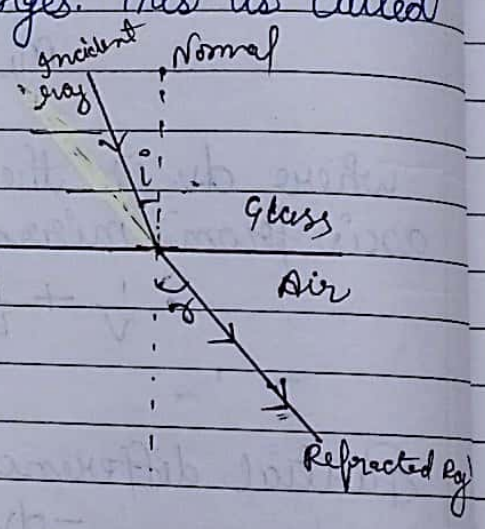 nges. This is called
Incident
ray
Normal
i
Glass
Air
r
where
the
Refracted Ray